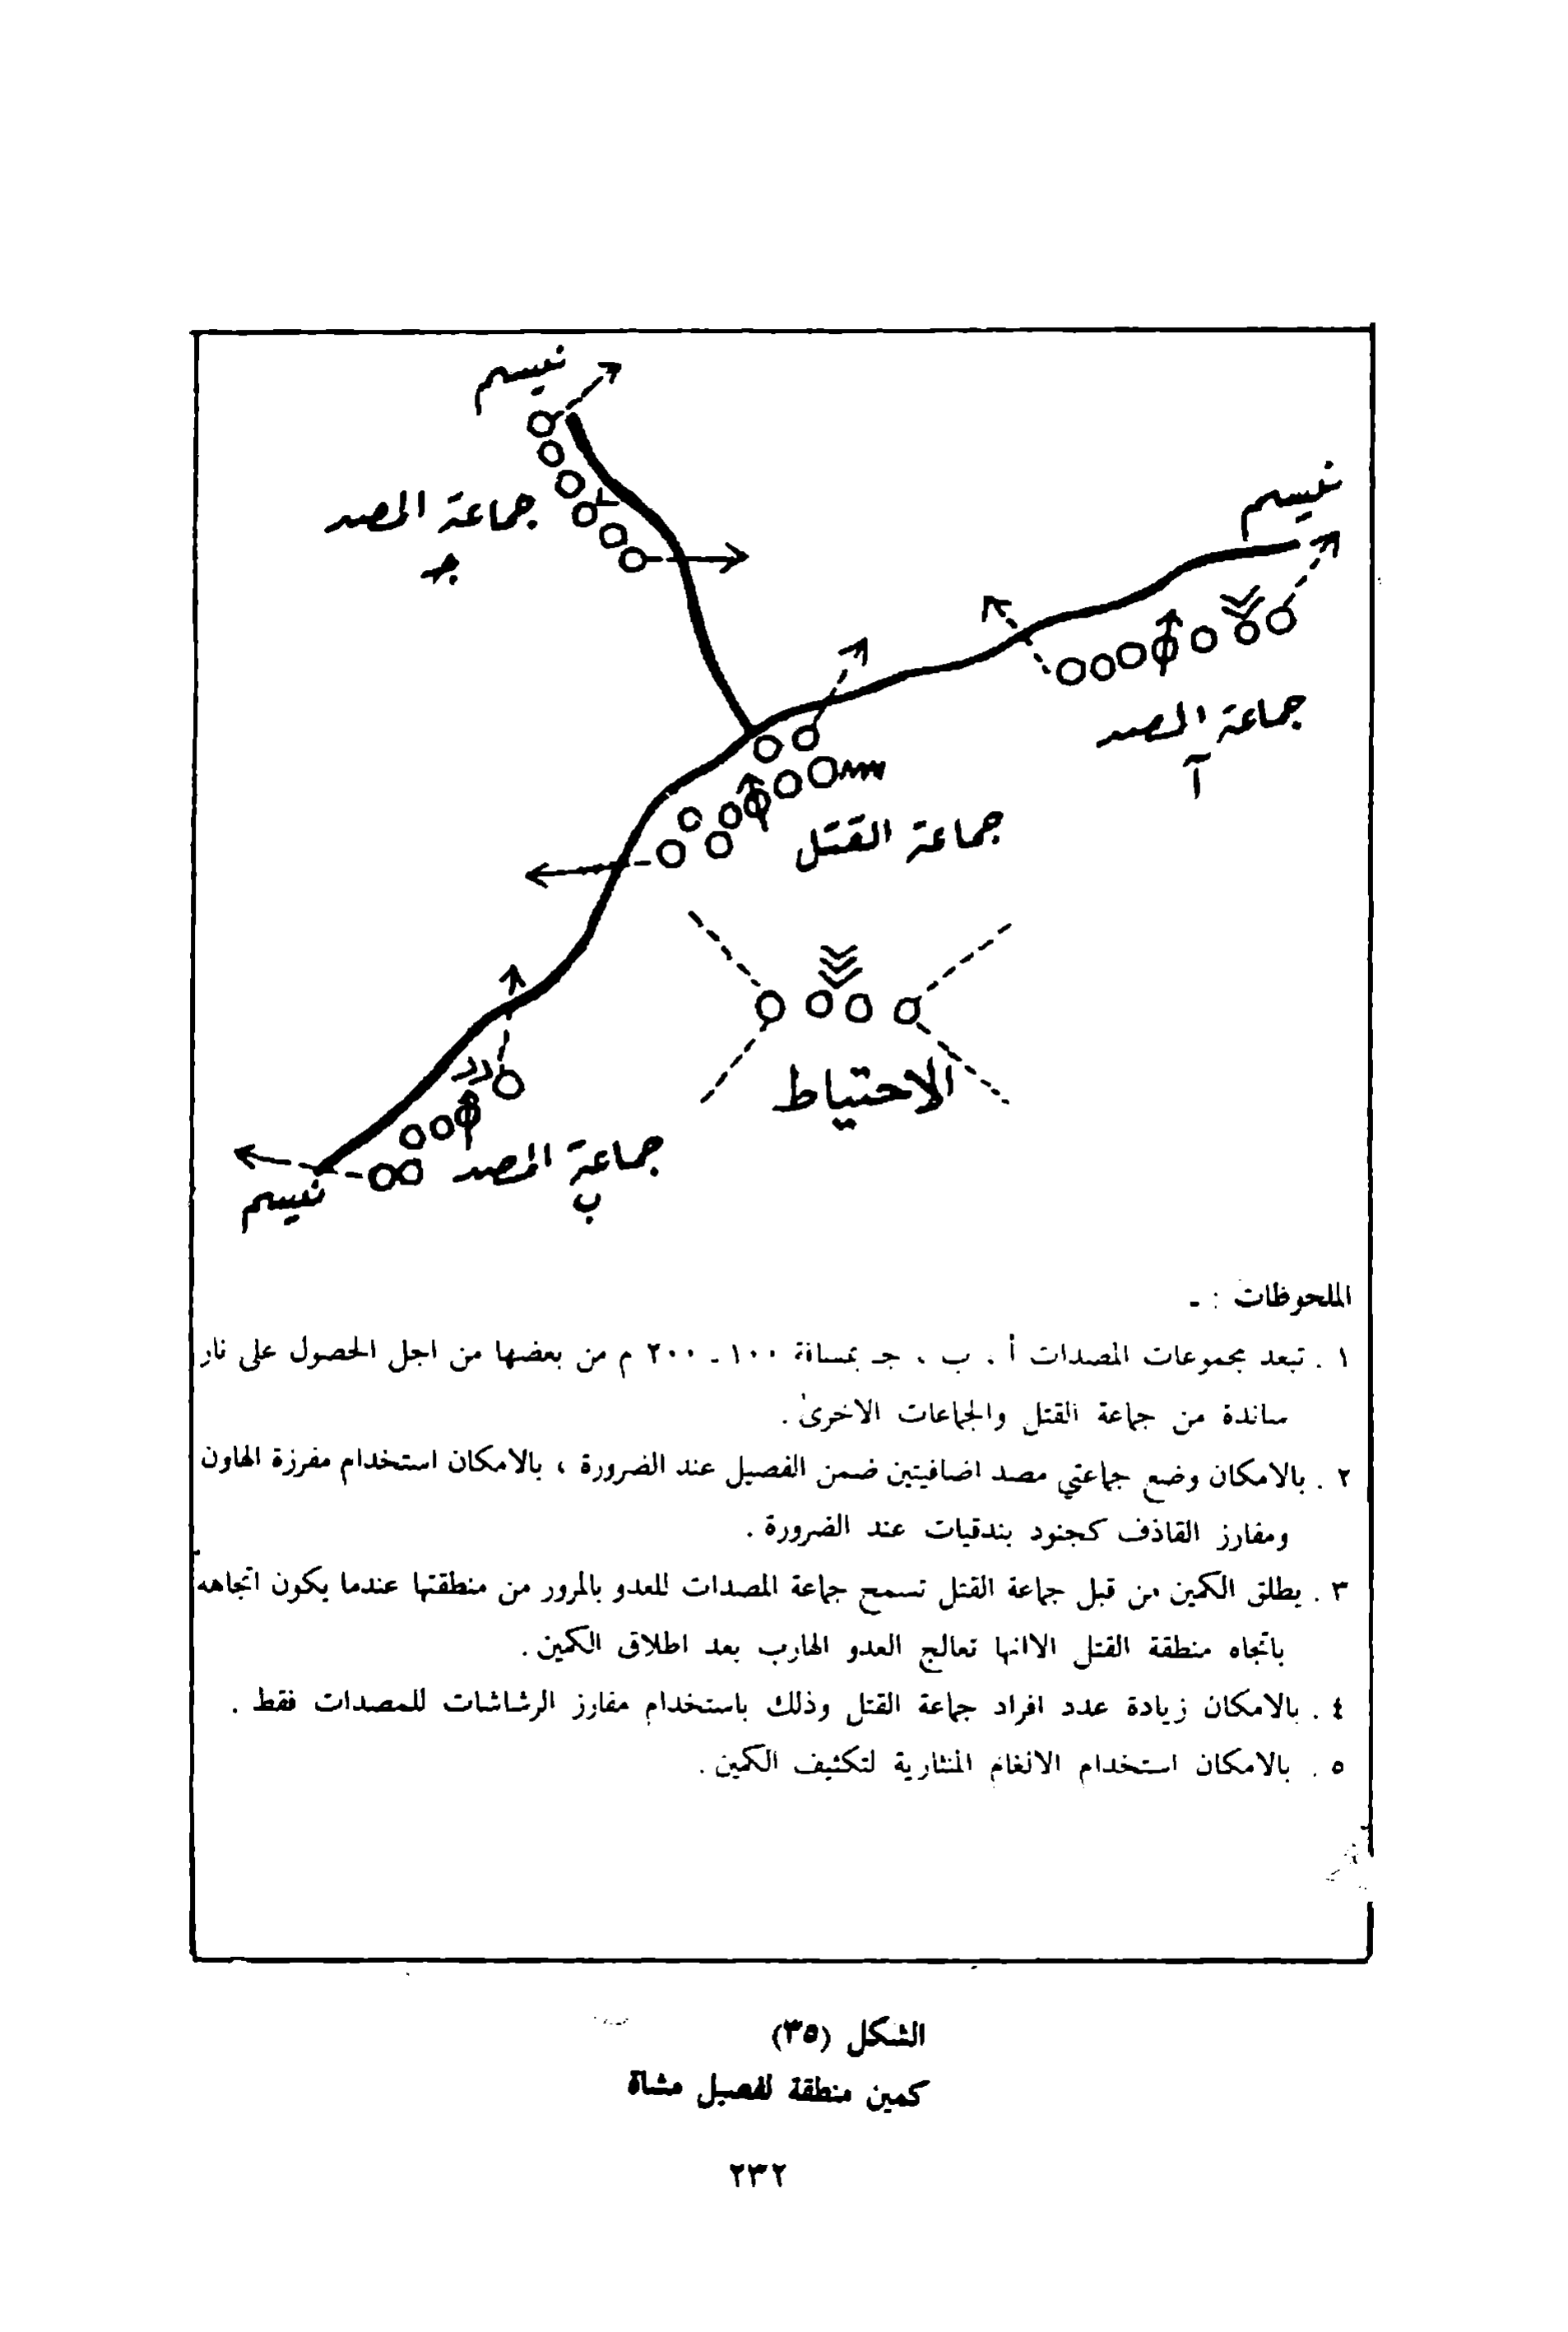 نيسم
نيسم
جماعة المصد
جـ
جماعة المصد
آ
جماعة القتل
الاحتياط
جماعة المصد
ب
نيسم
الملحوظات : ـ
١ . تبعد مجموعات المصدات أ . ب . جـ بمسافة ١٠٠ ـ ٢٠٠ م من بعضها من اجل الحصول على نار
ساندة من جماعة القتل والجماعات الاخرى .
٢ . بالامكان وضع جماعتي مصد اضافيتين ضمن الفصيل عند الضرورة ، بالامكان استخدام مفرزة الهاون
ومفارز القاذف كجنود بندقيات عند الضرورة .
٣ . يطلق الكمين من قبل جماعة القتل تسمح جماعة المصدات للعدو بالمرور من منطقتها عندما يكون اتجاهه
باتجاه منطقة القتل الاانها تعالج العدو الهارب بعد اطلاق الكمين .
٤ . بالامكان زيادة عدد افراد جماعة القتل وذلك باستخدام مفارز الرشاشات للمصدات فقط .
٥ . بالامكان استخدام الالغام المنثارية لتكثيف الكمين .
الشكل (٣٥)
كمين منطقة لفصيل مشاة
٢٣٢